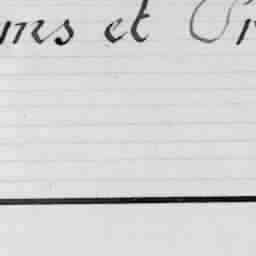 ms et Pr